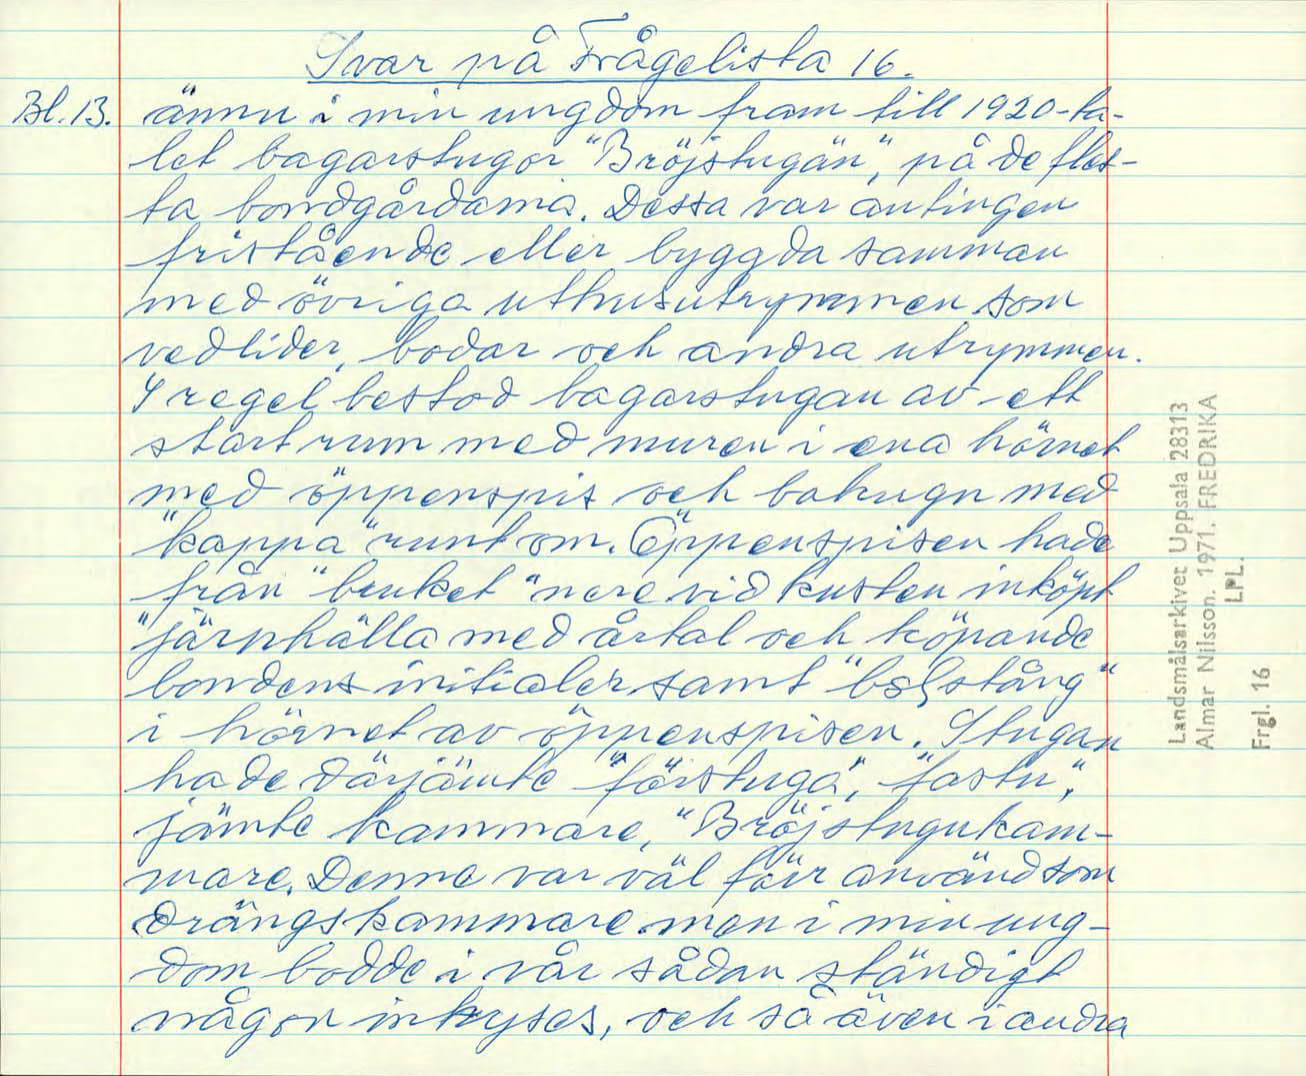 Svar på Frågelista 16.
Bl. 13. ännu i min ungdom fram till 1920-ta-
let bagarstugor "Bröjstugän", på de fles-
ta bondgårdarna. Dessa var antingen
fristående eller byggda samman
med övriga uthusutrymmen som
vedlider, bodar och andra utrymmen.
I regel bestod bagarstugan av ett
stort rum med muren i ena hörnet
med öppenspis och bakugn med
"kappa" runt om. Öppenspisen hade
från "bruket" nere vid kusten inköpt
"järnhälla med årtal och köpande
bondens initialer samt "bolstång"
i hörnet av öppenspisen. Stugan
hade därjämte "förstuga", "fastu",
jämte kammare, "Bröjstugukam-
mare. Denna var väl förr använd som
drängskammare men i min ung-
dom bodde i vår sådan ständigt
någon inhyses, och så även i andra
Landsmålsarkivet Uppsala 28313
Almar Nilsson. 1971. FREDRIKA
LPL.
Frgl. 16